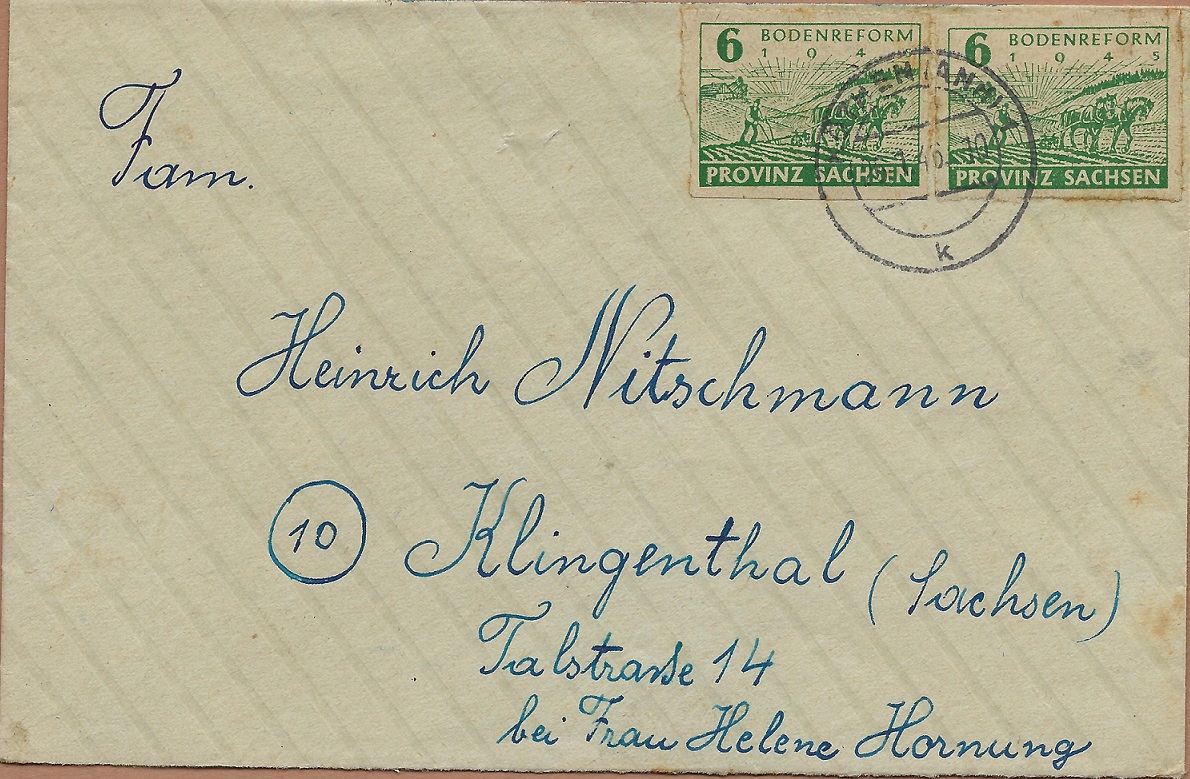 6 BODENREFORM
1 9 4 5
PROVINZ SACHSEN
6 BODENREFORM
1 9 4 5
PROVINZ SACHSEN
k
Fam.
Heinrich Nitschmann
10 Klingenthal (Sachsen)
Talstraße 14
bei Frau Helene Hornung